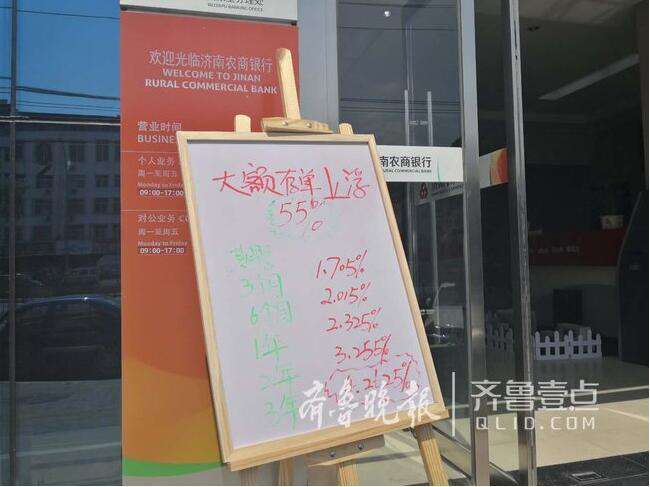 欢迎光临济南农商银行
WELCOME TO JINAN
RURAL COMMERCIAL BANK
营业时间
BUSINE
个人业务
周一至周五
Monday to Friday
09:00-17:00
对公业务 CO
周一至周五
Monday to Friday
09:00-17:00
南农商银行
RURAL COMMERCIAL BANK
大额存单上浮
55%
期限
3个月 1.705%
6个月 2.015%
1年 2.325%
2年 3.255%
3年 4.2125%
齐鲁晚报
齐鲁壹点
QLID.COM